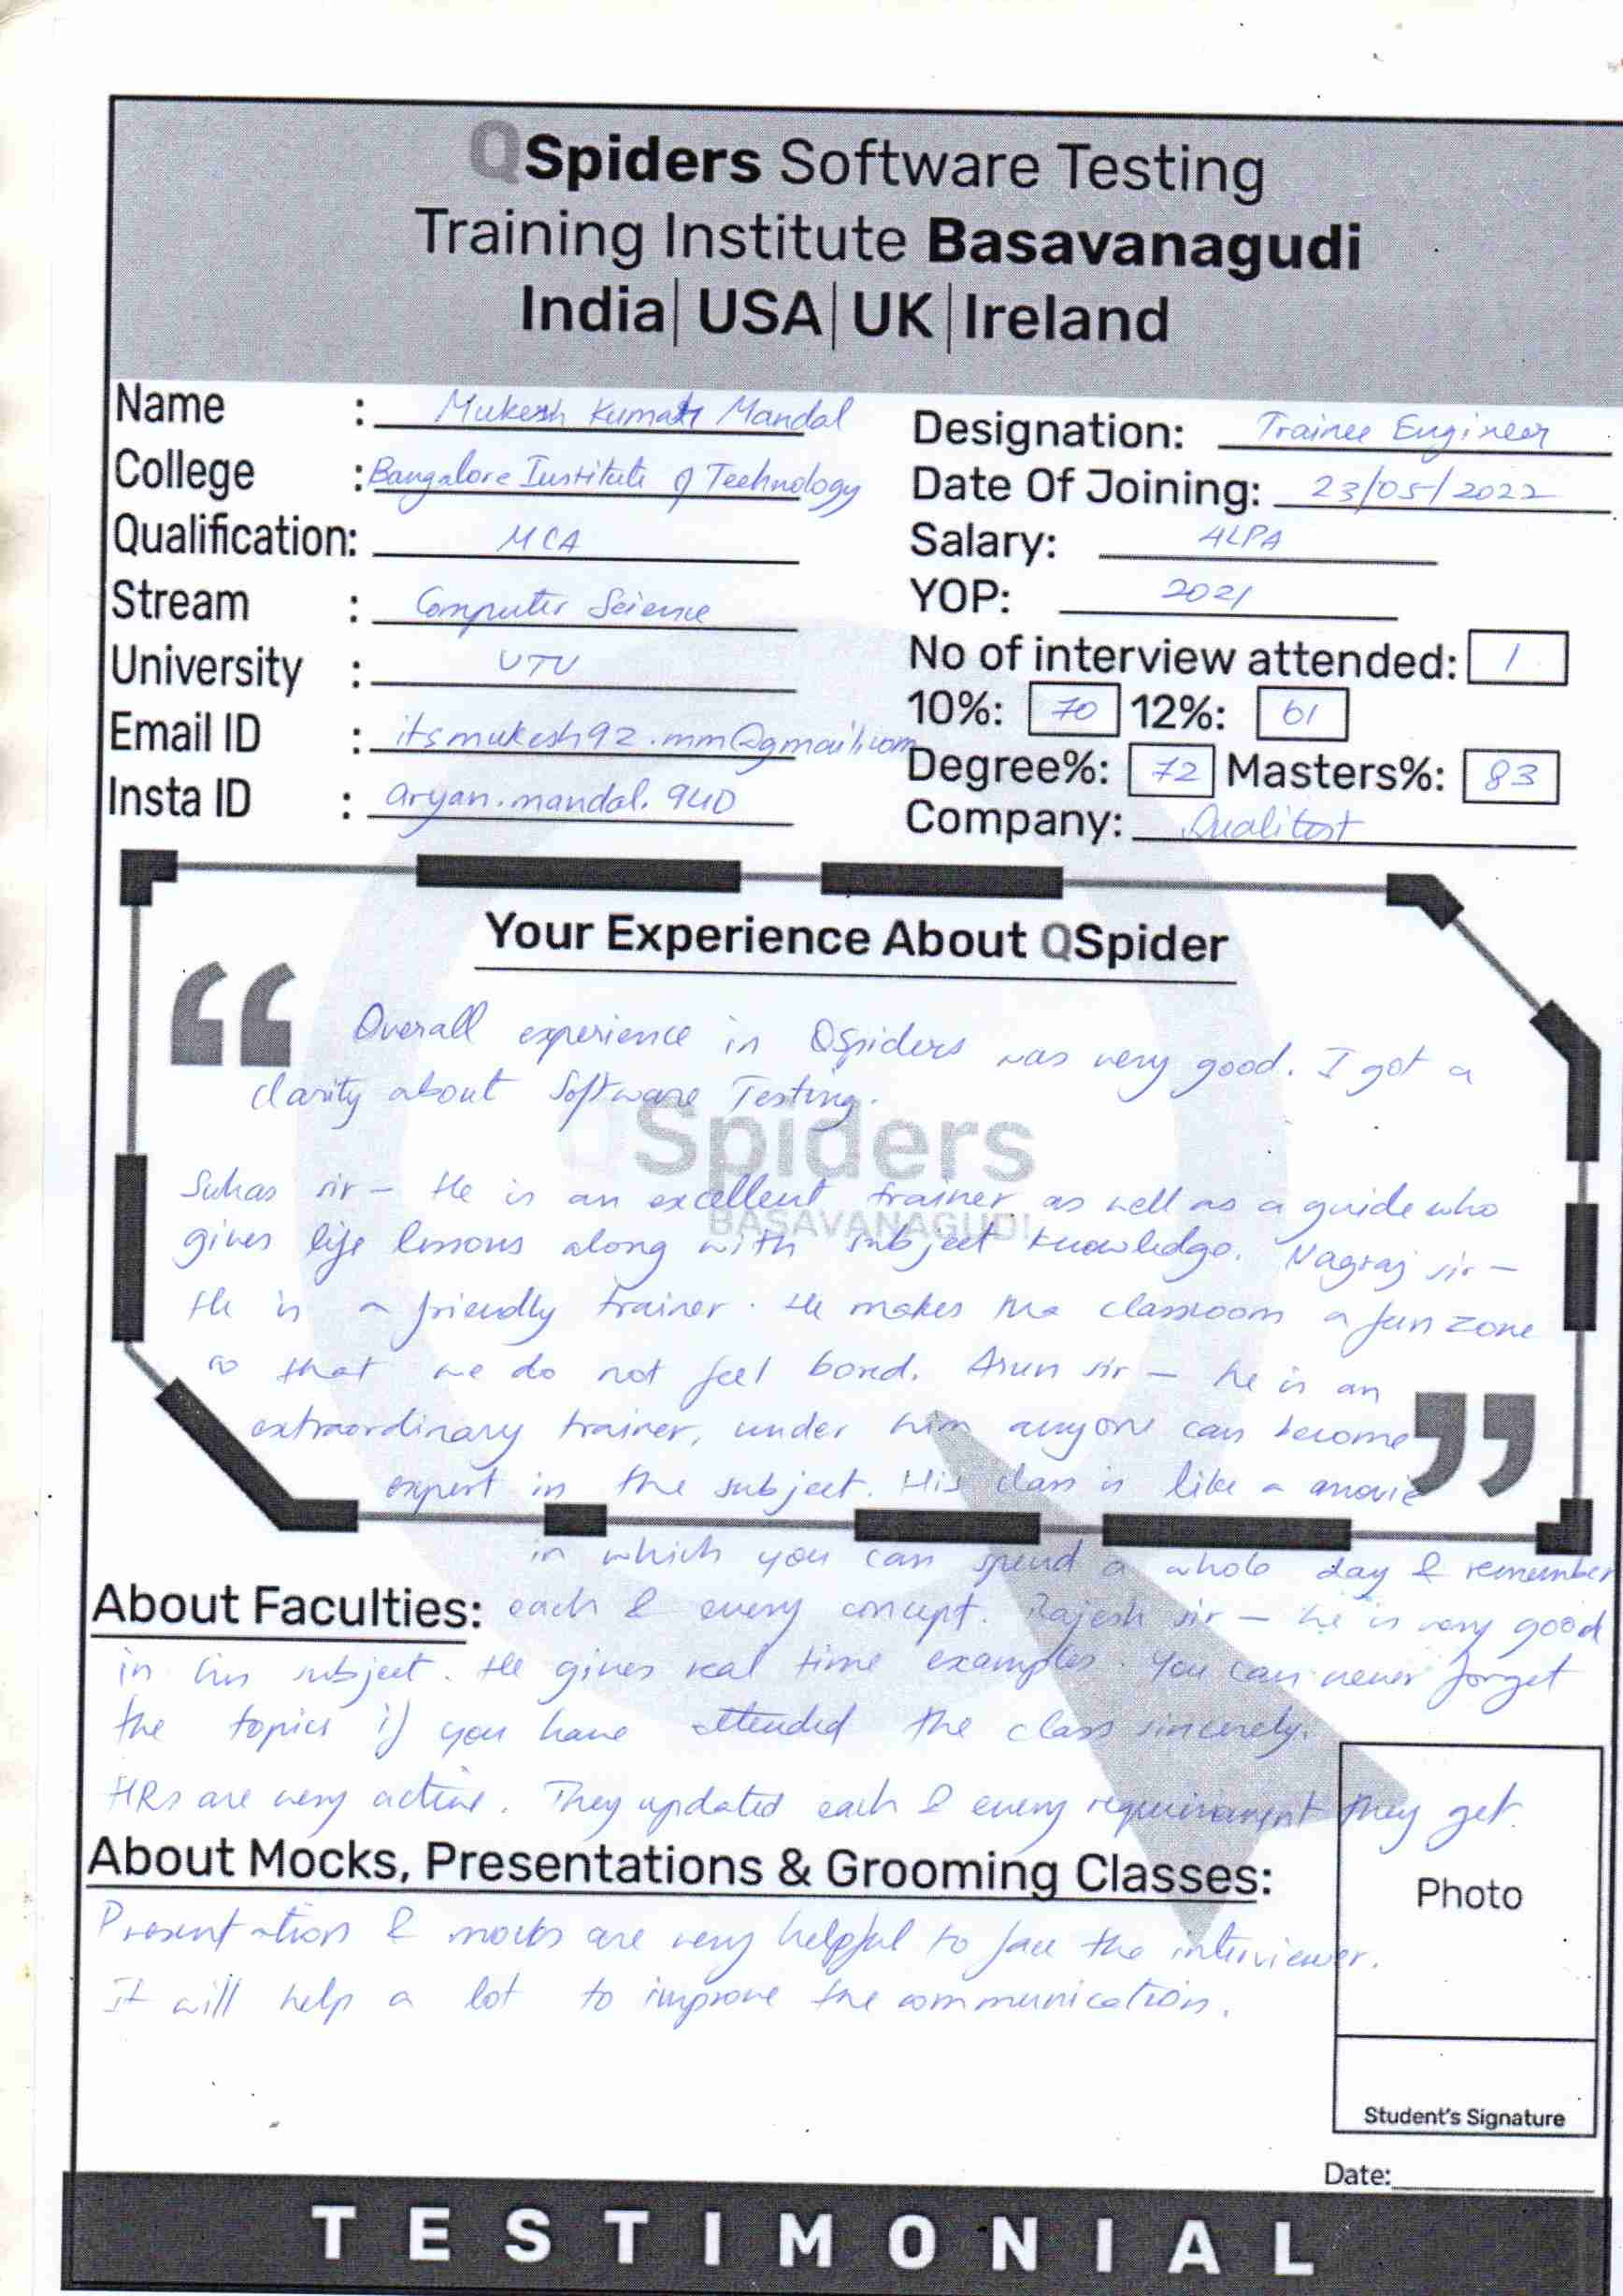 QSpiders Software Testing
Training Institute Basavanagudi
India| USA| UK| Ireland
Name : Mukesh Kumar Mandal
Designation: Trainee Engineer
College : Bangalore Institute of Technology
Date Of Joining: 23/05/2022
Qualification: MCA
Salary: 4LPA
Stream : Computer Science
YOP: 2021
University : VTU
No of interview attended: 1
10%: 70 12%: 61
Email ID : itsmukesh92.mm@gmail.com
Degree%: 72 Masters%: 83
Insta ID : aryan.mandal.940
Company: Qualitest
Your Experience About QSpider
Overall experience in QSpiders was very good. I got a
clarity about Software Testing.
QSpiders
BASAVANAGUDI
Suhas sir - He is an excellent trainer as well as a guide who
gives life lessons along with subject knowledge. Nagraj sir -
He is a friendly trainer. He makes the classroom a fun zone
so that we do not feel bored. Arun sir - he is an
extraordinary trainer, under him anyone can become
expert in the subject. His class is like a movie
in which you can spend a whole day & remember
About Faculties: each & every concept. Rajesh sir - he is very good
in his subject. He gives real time examples. You can never forget
the topics if you have attended the class sincerely.
HRs are very active. They updated each & every requirement they get.
About Mocks, Presentations & Grooming Classes:
Presentation & mocks are very helpful to face the interviewer.
It will help a lot to improve the communication.
Photo
Student's Signature
Date:
TESTIMONIAL